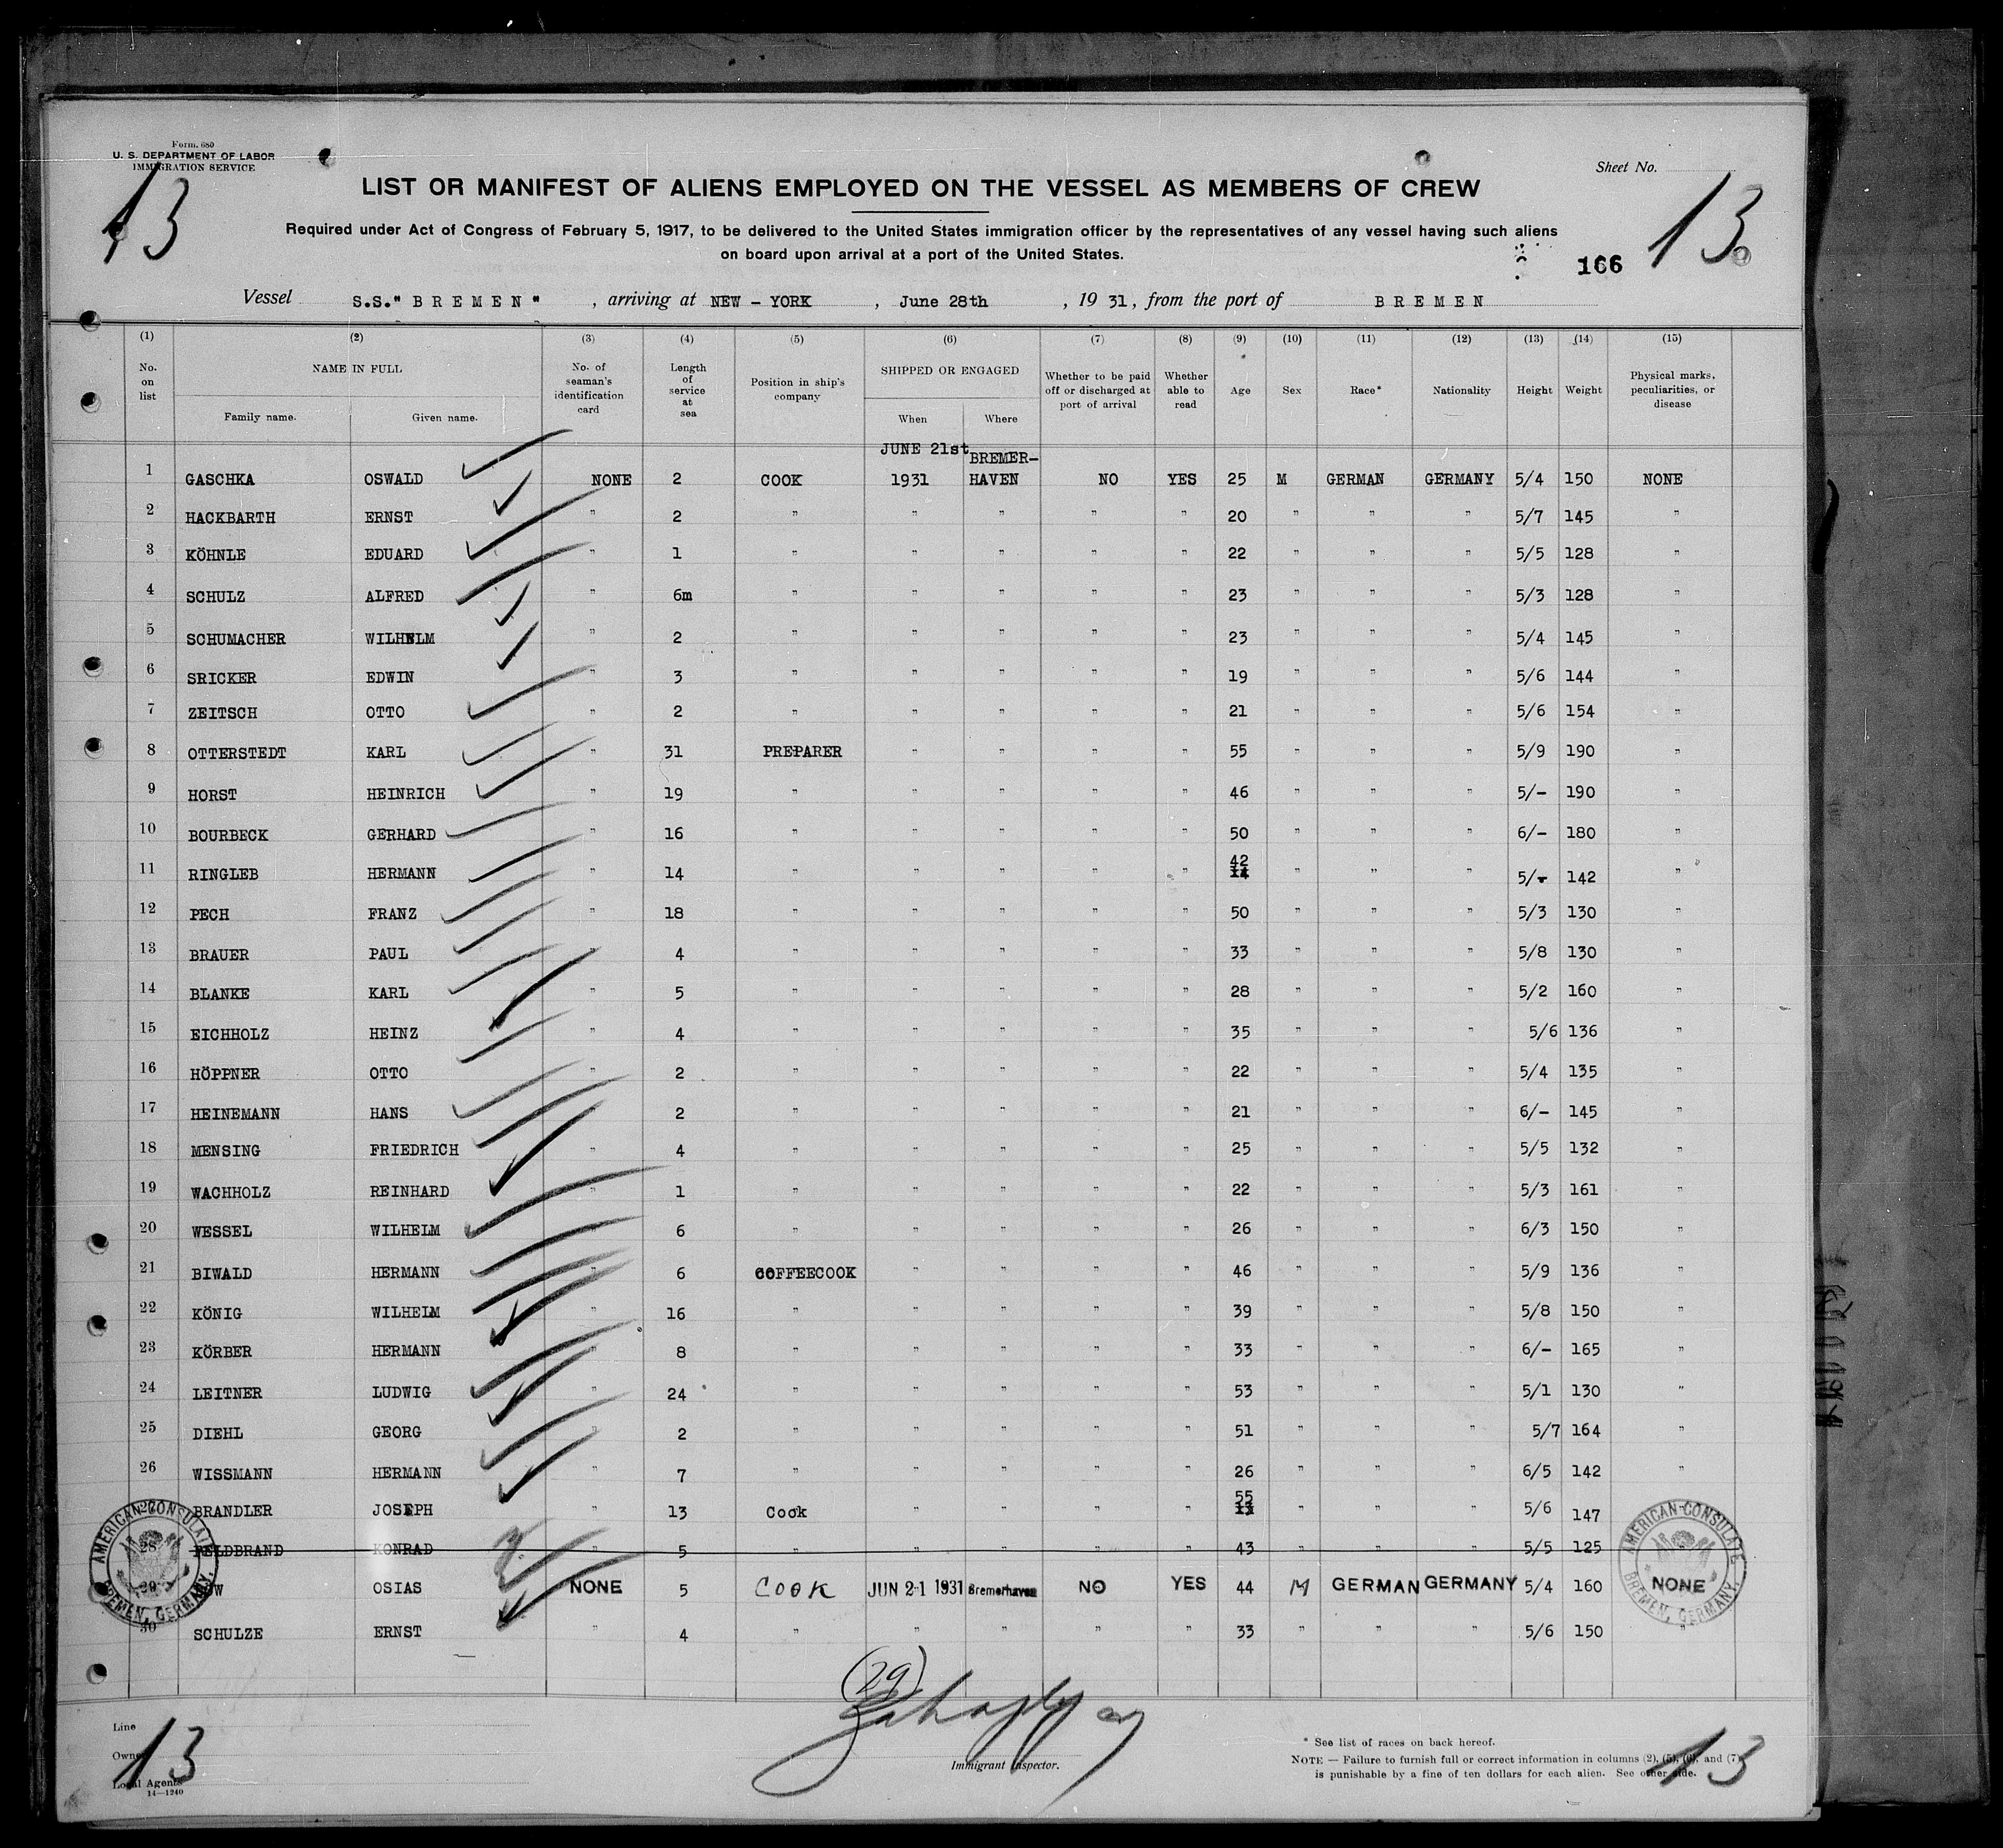 Form. 680
U. S. DEPARTMENT OF LABOR
IMMIGRATION SERVICE
Sheet No.
13
13
LIST OR MANIFEST OF ALIENS EMPLOYED ON THE VESSEL AS MEMBERS OF CREW
Required under Act of Congress of February 5, 1917, to be delivered to the United States immigration officer by the representatives of any vessel having such aliens
on board upon arrival at a port of the United States.
166
Vessel S.S." B R E M E N " , arriving at NEW - YORK , June 28th , 19 31, from the port of B R E M E N
(1) (2) (3) (4) (5) (6) (7) (8) (9) (10) (11) (12) (13) (14) (15)
No. on list NAME IN FULL Family name. Given name. No. of seaman's identification card Length of service at sea Position in ship's company SHIPPED OR ENGAGED When Where Whether to be paid off or discharged at port of arrival Whether able to read Age Sex Race* Nationality Height Weight Physical marks, peculiarities, or disease
1 GASCHKA OSWALD NONE 2 COOK JUNE 21st 1931 BREMER- HAVEN NO YES 25 M GERMAN GERMANY 5/4 150 NONE
2 HACKBARTH ERNST " 2 " " " " " 20 " " " 5/7 145 "
3 KÖHNLE EDUARD " 1 " " " " " 22 " " " 5/5 128 "
4 SCHULZ ALFRED " 6m " " " " " 23 " " " 5/3 128 "
5 SCHUMACHER WILHELM " 2 " " " " " 23 " " " 5/4 145 "
6 SRICKER EDWIN " 3 " " " " " 19 " " " 5/6 144 "
7 ZEITSCH OTTO " 2 " " " " " 21 " " " 5/6 154 "
8 OTTERSTEDT KARL " 31 PREPARER " " " " 55 " " " 5/9 190 "
9 HORST HEINRICH " 19 " " " " " 46 " " " 5/- 190 "
10 BOURBECK GERHARD " 16 " " " " " 50 " " " 6/- 180 "
11 RINGLEB HERMANN " 14 " " " " " 42 14 " " " 5/- 142 "
12 PECH FRANZ " 18 " " " " " 50 " " " 5/3 130 "
13 BRAUER PAUL " 4 " " " " " 33 " " " 5/8 130 "
14 BLANKE KARL " 5 " " " " " 28 " " " 5/2 160 "
15 EICHHOLZ HEINZ " 4 " " " " " 35 " " " 5/6 136 "
16 HÖPPNER OTTO " 2 " " " " " 22 " " " 5/4 135 "
17 HEINEMANN HANS " 2 " " " " " 21 " " " 6/- 145 "
18 MENSING FRIEDRICH " 4 " " " " " 25 " " " 5/5 132 "
19 WACHHOLZ REINHARD " 1 " " " " " 22 " " " 5/3 161 "
20 WESSEL WILHELM " 6 " " " " " 26 " " " 6/3 150 "
21 BIWALD HERMANN " 6 COFFEECOOK " " " " 46 " " " 5/9 136 "
22 KÖNIG WILHELM " 16 " " " " " 39 " " " 5/8 150 "
23 KÖRBER HERMANN " 8 " " " " " 33 " " " 6/- 165 "
24 LEITNER LUDWIG " 24 " " " " " 53 " " " 5/1 130 "
25 DIEHL GEORG " 2 " " " " " 51 " " " 5/7 164 "
26 WISSMANN HERMANN " 7 " " " " " 26 " " " 6/5 142 "
27 BRANDLER JOSEPH " 13 Cook " " " " 55 13 " " " 5/6 147 "
28 FELDBRAND KONRAD " 5 " " " " " 43 " " " 5/5 125 "
29 OSIAS NONE 5 COOK JUN 21 1931 Bremerhaven NO YES 44 M GERMAN GERMANY 5/4 160 NONE
30 SCHULZE ERNST " 4 " " " " " 33 " " " 5/6 150 "
AMERICAN CONSULATE BREMEN, GERMANY.
AMERICAN CONSULATE BREMEN, GERMANY.
(29)
Line
Owner
Local Agents
14—1240
13
Immigrant Inspector.
* See list of races on back hereof.
NOTE — Failure to furnish full or correct information in columns (2), (5), (6), and (7)
is punishable by a fine of ten dollars for each alien. See other side.
13